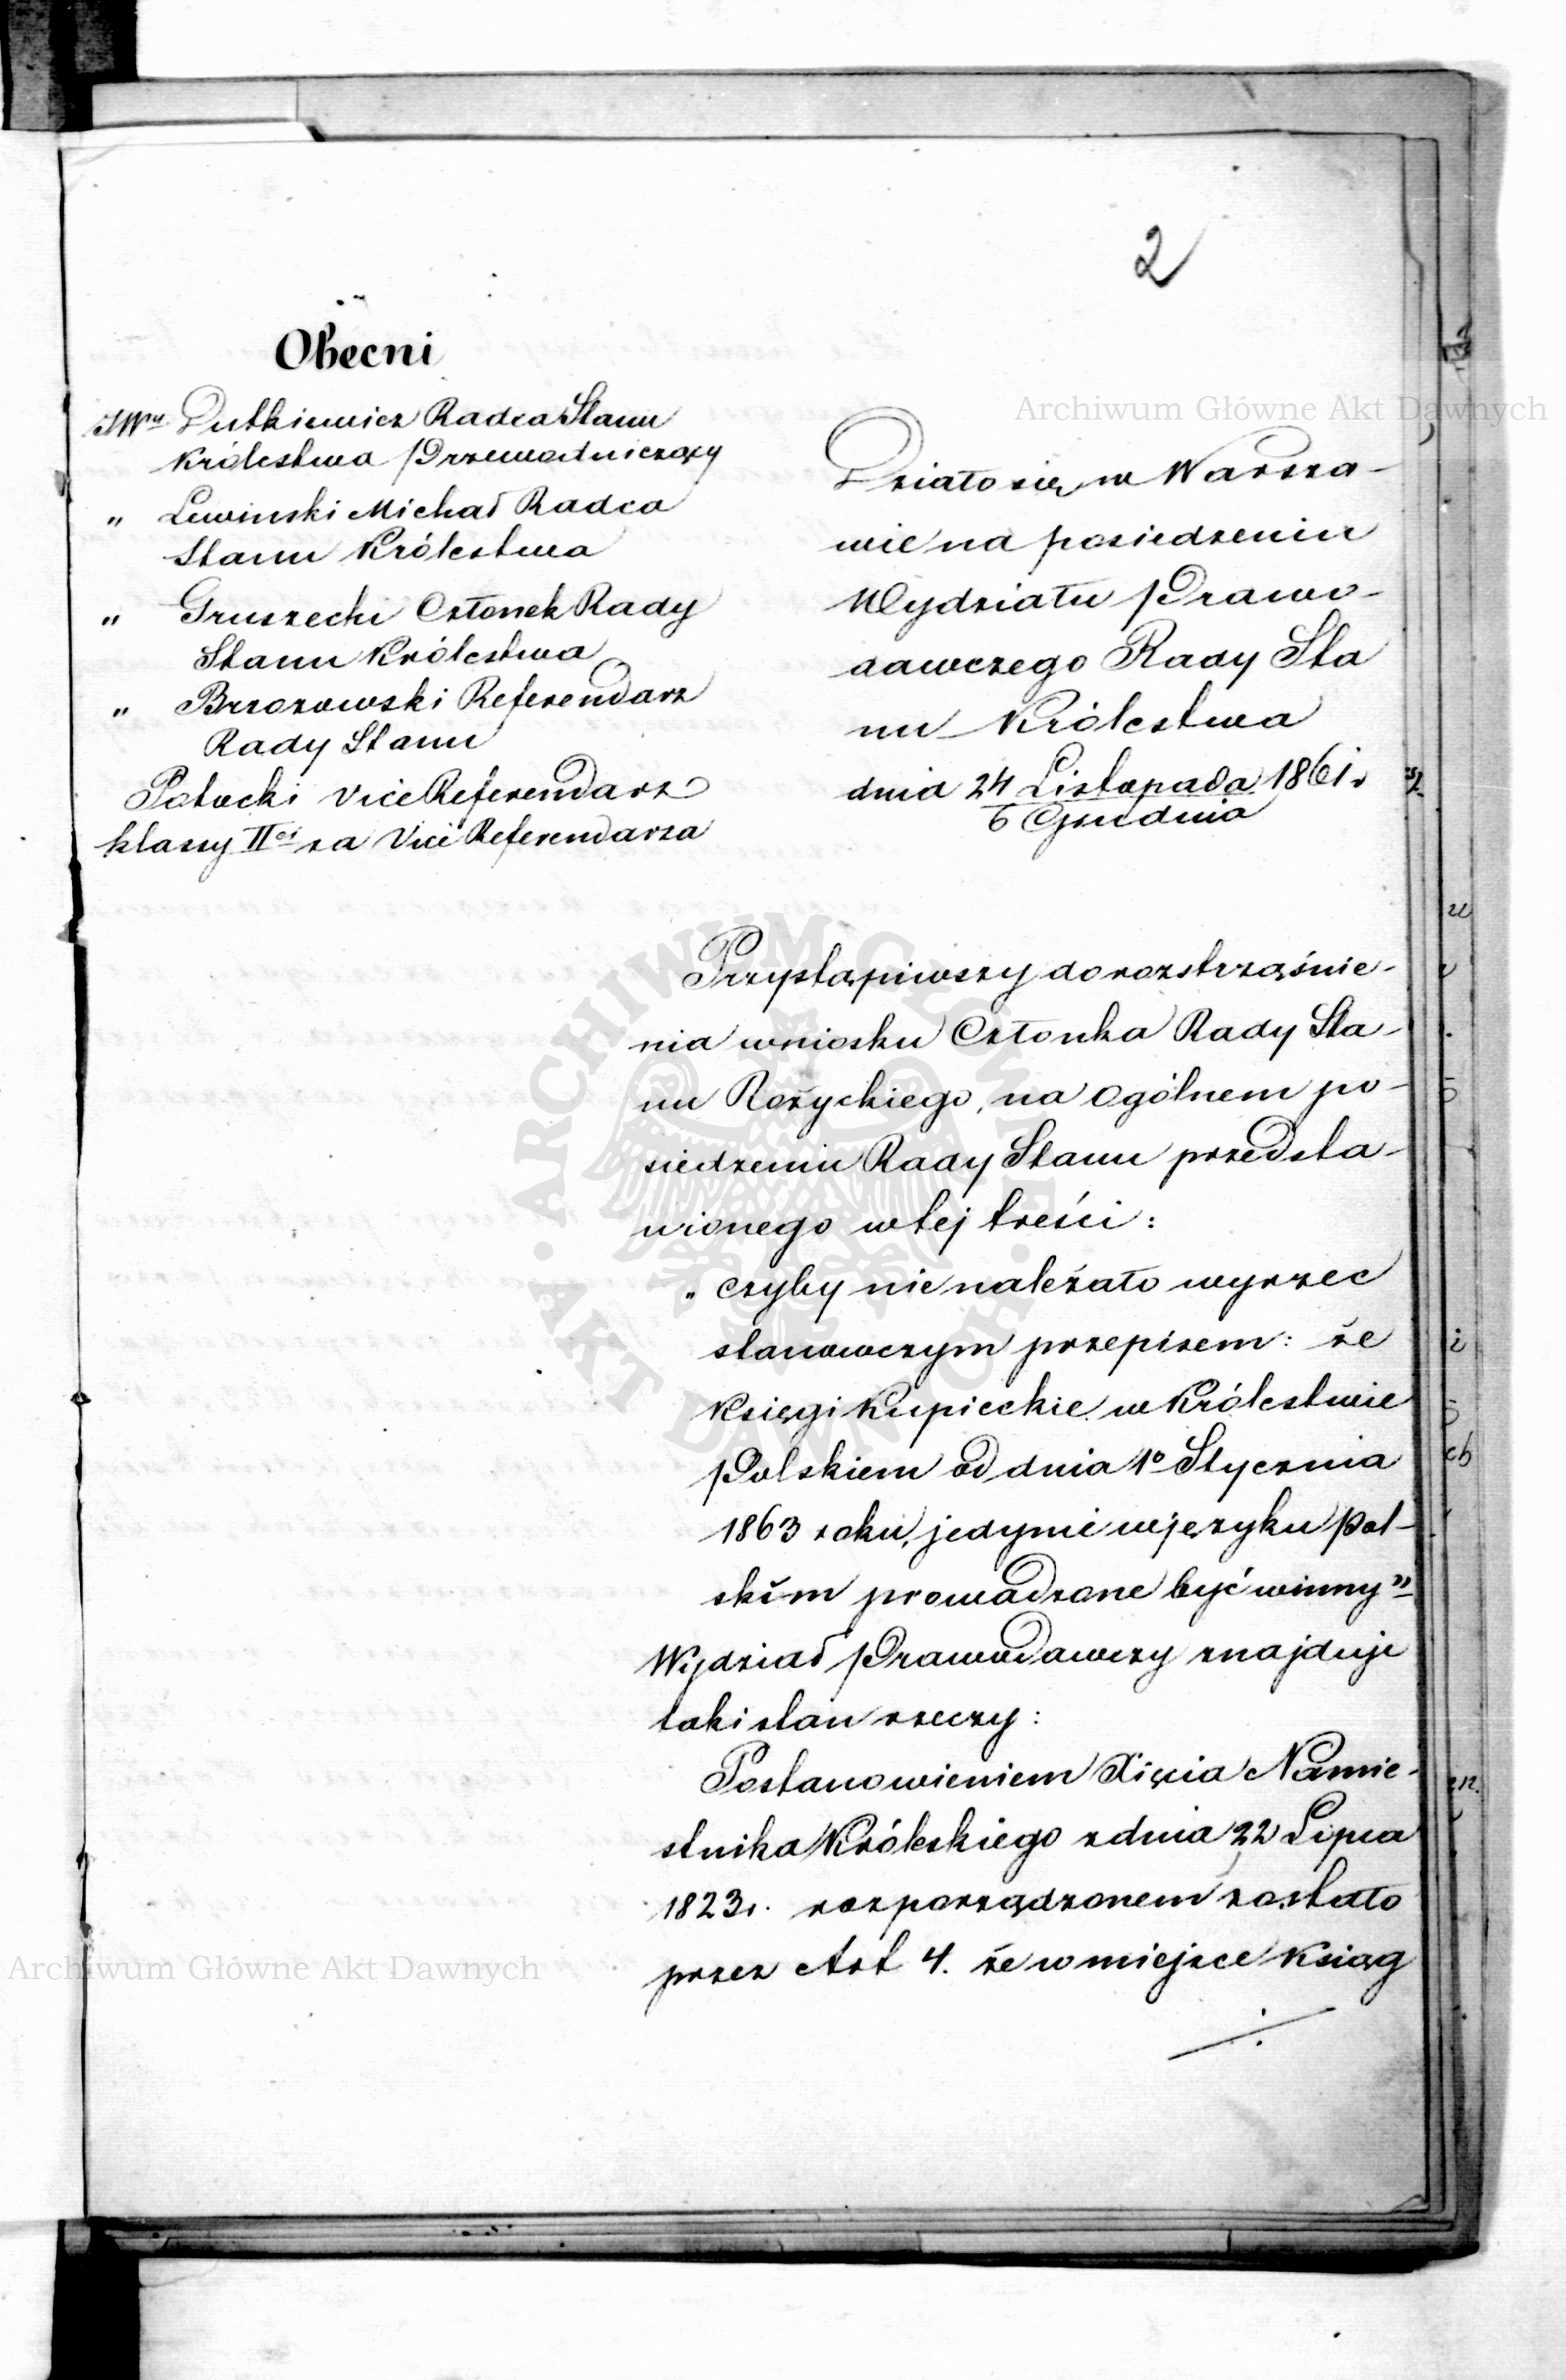 2
Obecni
JWny Dutkiewicz Radca Stanu
Królestwa Przewodniczący
" Lewinski Michał Radca
Stanu Królestwa
" Gruszecki Członek Rady
Stanu Królestwa
" Brzozowski Referendarz
Rady Stanu
Potocki Vice Referendarz
klassy IIej za Vice Referendarza
Działo się w Warsza-
wie na posiedzeniu
Wydziału Prawo-
dawczego Rady Sta
nu Królestwa
dnia 24 Listopada 1861 r
6 Grudnia
Przystąpiwszy do roztrząśnie-
nia wniosku Członka Rady Sta-
nu Rożyckiego, na ogólnem po-
siedzeniu Rady Stanu przedsta-
wionego w tej treści:
„ czyby nie należało wyrzec
stanowczym przepisem: że
Księgi Kupieckie w Królestwie
Polskiem od dnia 1o Stycznia
1863 roku, jedynie w języku Pol-
skim prowadzone być winny"
Wydział Prawodawczy znajduje
taki stan rzeczy:
Postanowieniem Xięcia Namie-
stnika Króleskiego z dnia 22 Lipca
1823 r. rozporządzonem zostało
przez Art 4. że w miejsce Ksiąg
Archiwum Główne Akt Dawnych
Archiwum Główne Akt Dawnych
ARCHIWUM GŁÓWNE AKT DAWNYCH